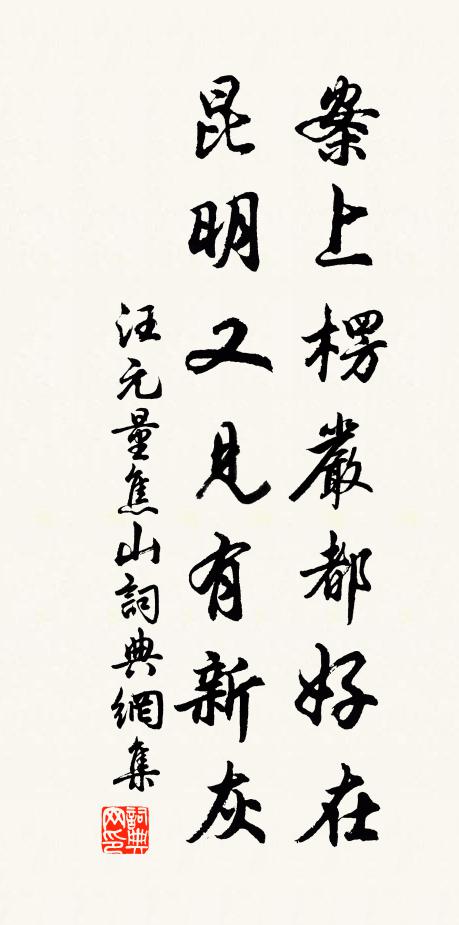 案上楞嚴都好在
昆明又見有新灰
汪元量焦山詞典網集
詞典网印